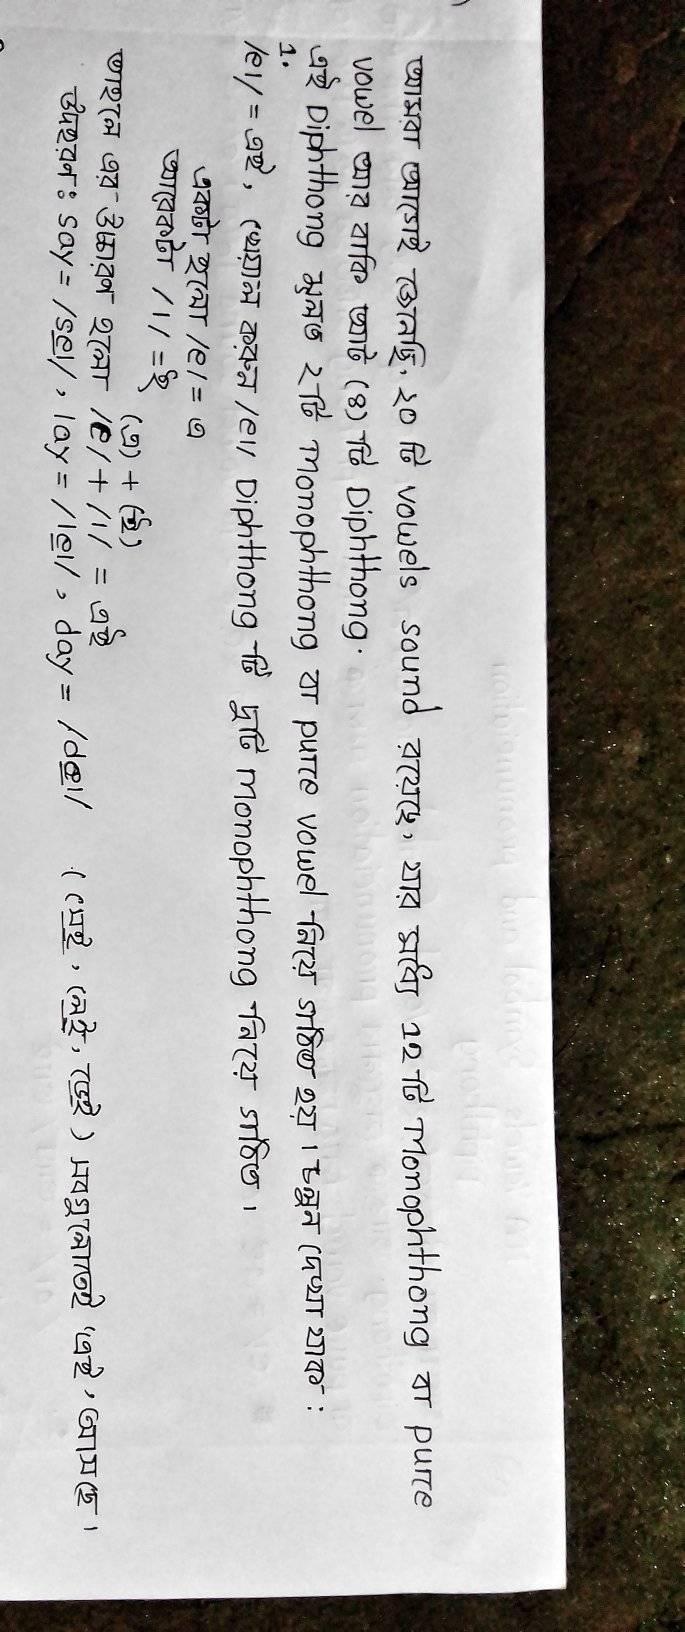 আমরা আগেই জেনেছি, ২০ টি vowels sound রয়েছে, যার মধ্যে 12 টি Monophthong বা pure
vowel আর বাকি আট (8) টি Diphthong.
এই Diphthong মূলত ২টি monophthong বা pure vowel নিয়ে গঠিত হয়। চলুন দেখা যাক :
1.
/eɪ/ = এই, খেয়াল করুন /eɪ/ Diphthong টি দুটি Monophthong নিয়ে গঠিত।
একটা হলো /e/ = এ
আরেকটা /ɪ/ = ই
(এ) + (ই)
তাহলে এর উচ্চারণ হলো /e/ + /ɪ/ = এই
উদাহরণ : say = /seɪ/, lay = /leɪ/, day = /deɪ/ (সেই, লেই, ডেই) সবগুলোতেই 'এই' আসছে।